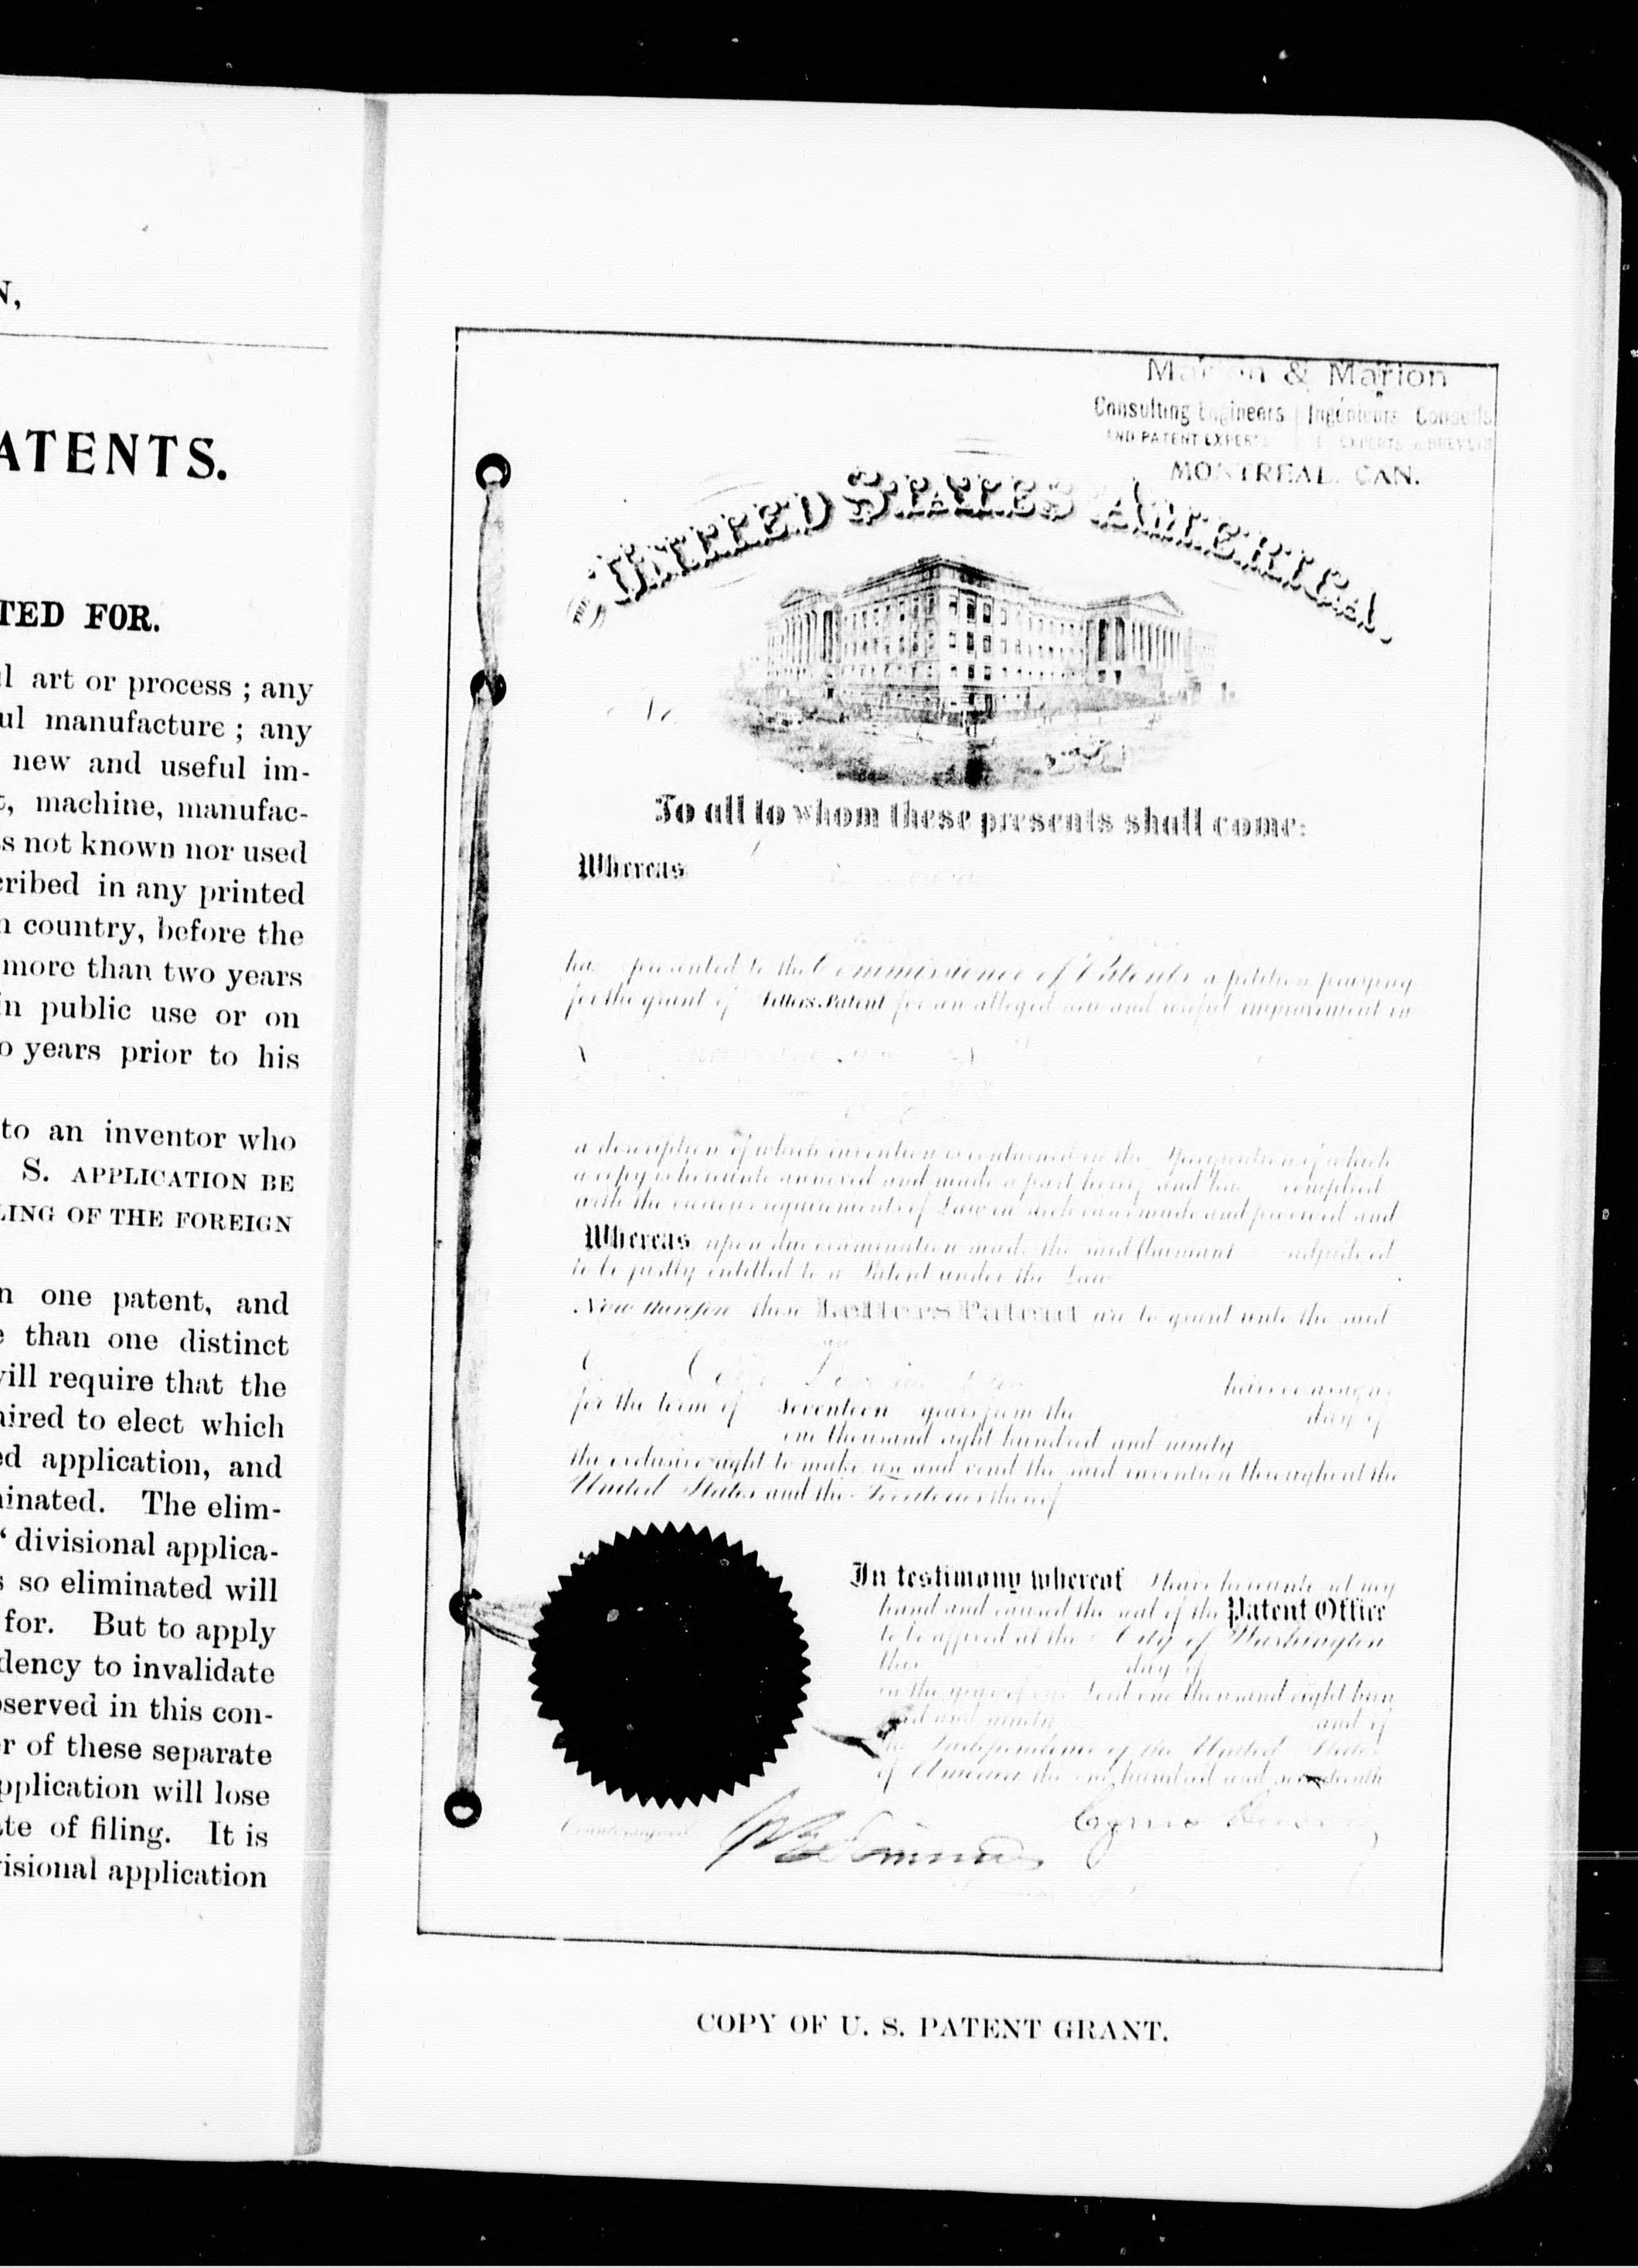 N,
ATENTS.
TED FOR.
l art or process ; any
ul manufacture ; any
new and useful im-
t, machine, manufac-
s not known nor used
cribed in any printed
n country, before the
more than two years
in public use or on
o years prior to his
to an inventor who
S. APPLICATION BE
LING OF THE FOREIGN
n one patent, and
e than one distinct
will require that the
uired to elect which
ed application, and
inated. The elim-
‘ divisional applica-
s so eliminated will
for. But to apply
dency to invalidate
bserved in this con-
r of these separate
pplication will lose
te of filing. It is
visional application
Marion & Marion
Consulting Engineers | Ingénieurs Conseils
AND PATENT EXPERTS
MONTREAL. CAN.
THE UNITED STATES AMERICA.
No.
To all to whom these presents shall come:
Whereas
has presented to the Commissioner of Patents a petition praying
for the grant of Letters Patent for an alleged new and useful improvement in
a description of which invention is contained in the Specification of which
a copy is hereunto annexed and made a part hereof and has complied
with the various requirements of Law in such cases made and provided and
Whereas upon due examination made the said Claimant adjudged
to be justly entitled to a Patent under the Law
Now therefore these Letters Patent are to grant unto the said
heirs or assigns
for the term of Seventeen years from the
day of
one thousand eight hundred and ninety
the exclusive right to make use and vend the said invention throughout the
United States and the Territories thereof
In testimony whereof I have hereunto set my
hand and caused the seal of the Patent Office
to be affixed at the City of Washington
this day of
in the year of our Lord one thousand eight hun
dred and ninety and of
the Independence of the United States
of America the one hundred and seventeenth
Countersigned
COPY OF U. S. PATENT GRANT.